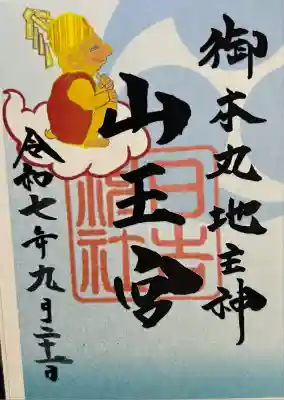 御本丸地主神
山王宮
日吉神社
令和七年九月二十一日